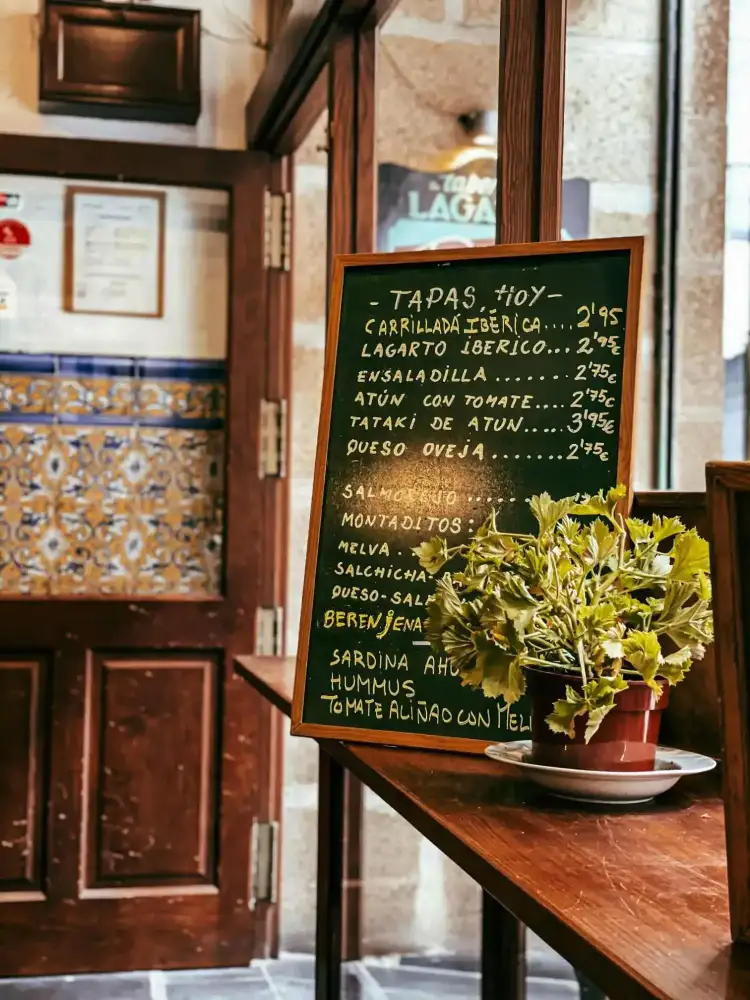 tapas
LAGA
- TAPAS HOY -
CARRILLADA IBÉRICA.... 2'95
LAGARTO IBERICO... 2'95€
ENSALADILLA ....... 2'75€
ATÚN CON TOMATE.... 2'75€
TATAKI DE ATUN..... 3'95€
QUESO OVEJA ....... 2'75€
SALMOREJO ......
MONTADITOS:
MELVA.
SALCHICHA-
QUESO-SAL
BERENJENA
SARDINA AHU
HUMMUS
TOMATE ALIÑAO CON MEL